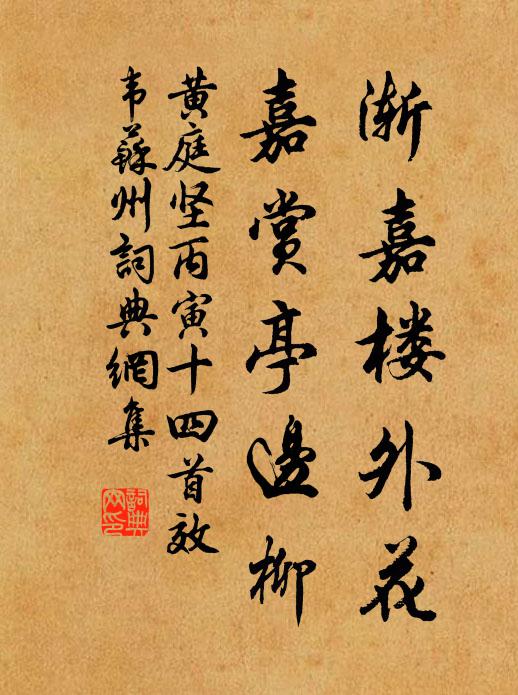 渐嘉楼外花
嘉赏亭邊柳
黄庭坚丙寅十四首效
韦蘇州詞典網集
詞典
网印